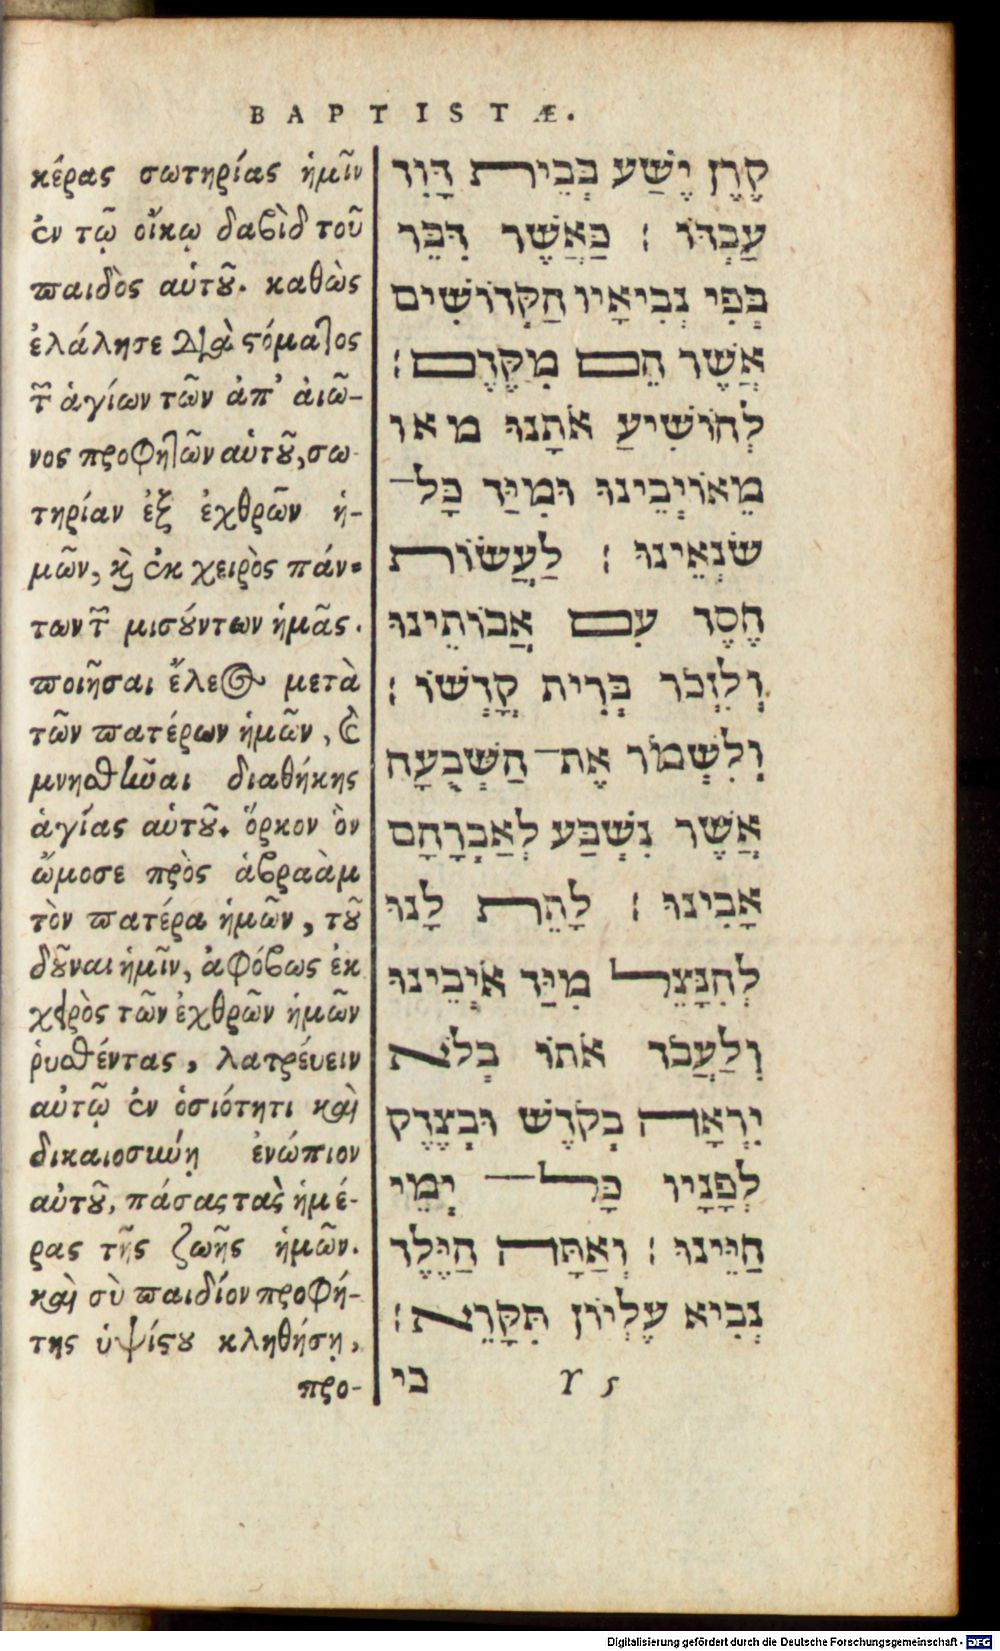 BAPTISTÆ.
κέρας σωτηρίας ἡμῖν
ἐν τῷ οἴκῳ δαβὶδ τοῦ
παιδὸς αὐτοῦ. καθὼς
ἐλάλησε διὰ στόματος
τῶν ἁγίων τῶν ἀπ' αἰῶ-
νος προφητῶν αὐτοῦ, σω
τηρίαν ἐξ ἐχθρῶν ἡ-
μῶν, καὶ ἐκ χειρὸς πάν-
των τῶν μισούντων ἡμᾶς.
ποιῆσαι ἔλεος μετὰ
τῶν πατέρων ἡμῶν, καὶ
μνησθῆναι διαθήκης
ἁγίας αὐτοῦ. ὅρκον ὃν
ὤμοσε πρὸς ἀβραὰμ
τὸν πατέρα ἡμῶν, τοῦ
δοῦναι ἡμῖν, ἀφόβως ἐκ
χειρὸς τῶν ἐχθρῶν ἡμῶν
ῥυσθέντας, λατρεύειν
αὐτῷ ἐν ὁσιότητι καὶ
δικαιοσύνῃ ἐνώπιον
αὐτοῦ, πάσας τὰς ἡμέ-
ρας τῆς ζωῆς ἡμῶν.
καὶ σὺ παιδίον προφή-
της ὑψίστου κληθήσῃ,
προ-
קֶרֶן יֶשַׁע בְּבֵית דָּוִד
עַבְדּוֹ : כַּאֲשֶׁר דִּבֵּר
בְּפִי נְבִיאָיו הַקְּדוֹשִׁים
אֲשֶׁר הֵם מִקֶּדֶם :
לְהוֹשִׁיעַ אֹתָנוּ מאז
מֵאוֹיְבֵינוּ וּמִיַּד כָּל־
שֹׂנְאֵינוּ : לַעֲשׂוֹת
חֶסֶד עִם אֲבוֹתֵינוּ
וְלִזְכֹּר בְּרִית קָדְשׁוֹ :
וְלִשְׁמֹר אֶת־ הַשְּׁבֻעָה
אֲשֶׁר נִשְׁבַּע לְאַבְרָהָם
אָבִינוּ : לָתֵת לָנוּ
לְהִנָּצֵל מִיַּד אֹיְבֵינוּ
וְלַעֲבֹד אֹתוֹ בְּלֹא
יִרְאָה בְּקֹדֶשׁ וּבְצֶדֶק
לְפָנָיו כָּל־ יְמֵי
חַיֵּינוּ : וְאַתָּה הַיֶּלֶד
נְבִיא עֶלְיוֹן תִּקָּרֵא :
כי
Y 5
Digitalisierung gefördert durch die Deutsche Forschungsgemeinschaft - DFG